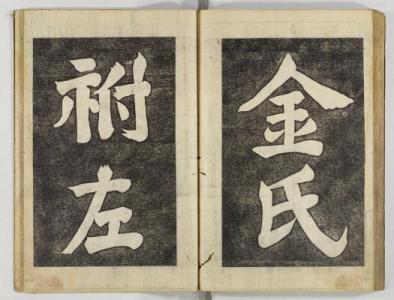 金氏
祔左